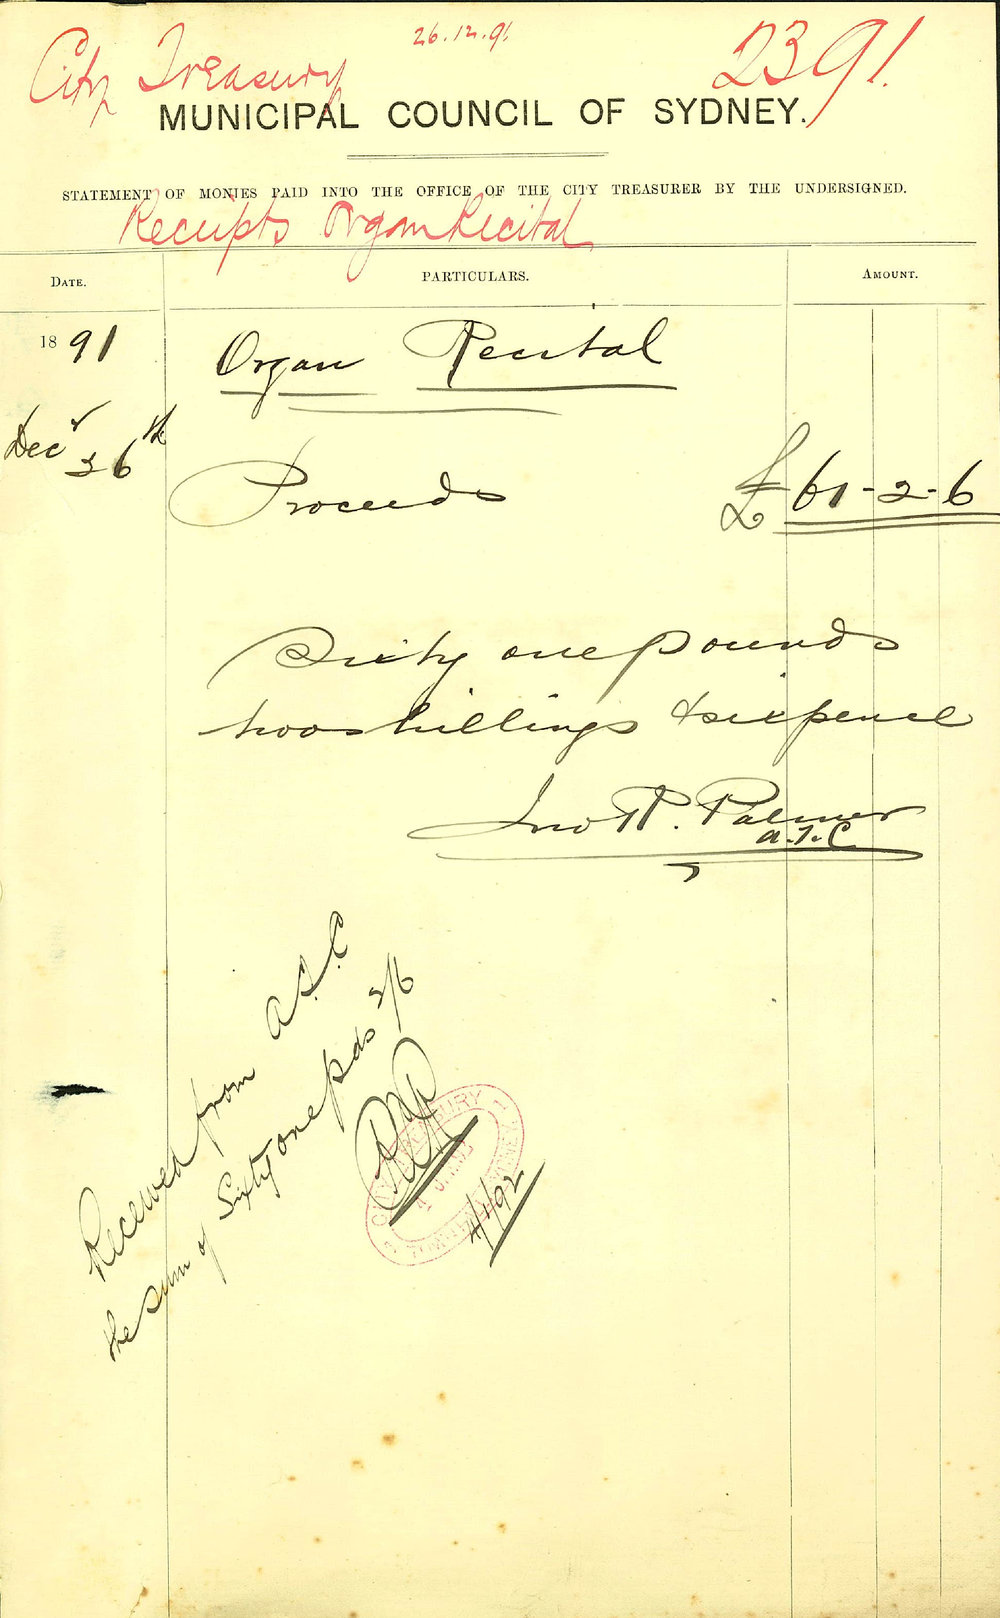 26.12.91
City Treasury
2391.
MUNICIPAL COUNCIL OF SYDNEY.
STATEMENT OF MONIES PAID INTO THE OFFICE OF THE CITY TREASURER BY THE UNDERSIGNED.
Receipts Organ Recital
DATE. PARTICULARS. AMOUNT.
1891 Organ Recital
Decr 26th
Proceeds £61-2-6
Sixty one pounds
two shillings & sixpence
Jno R. Palmer
A.T.C.
Received from A.T.C
the sum of Sixty one pds 2/6
CITY TREASURY
TOWN HALL SYDNEY
4/1/92